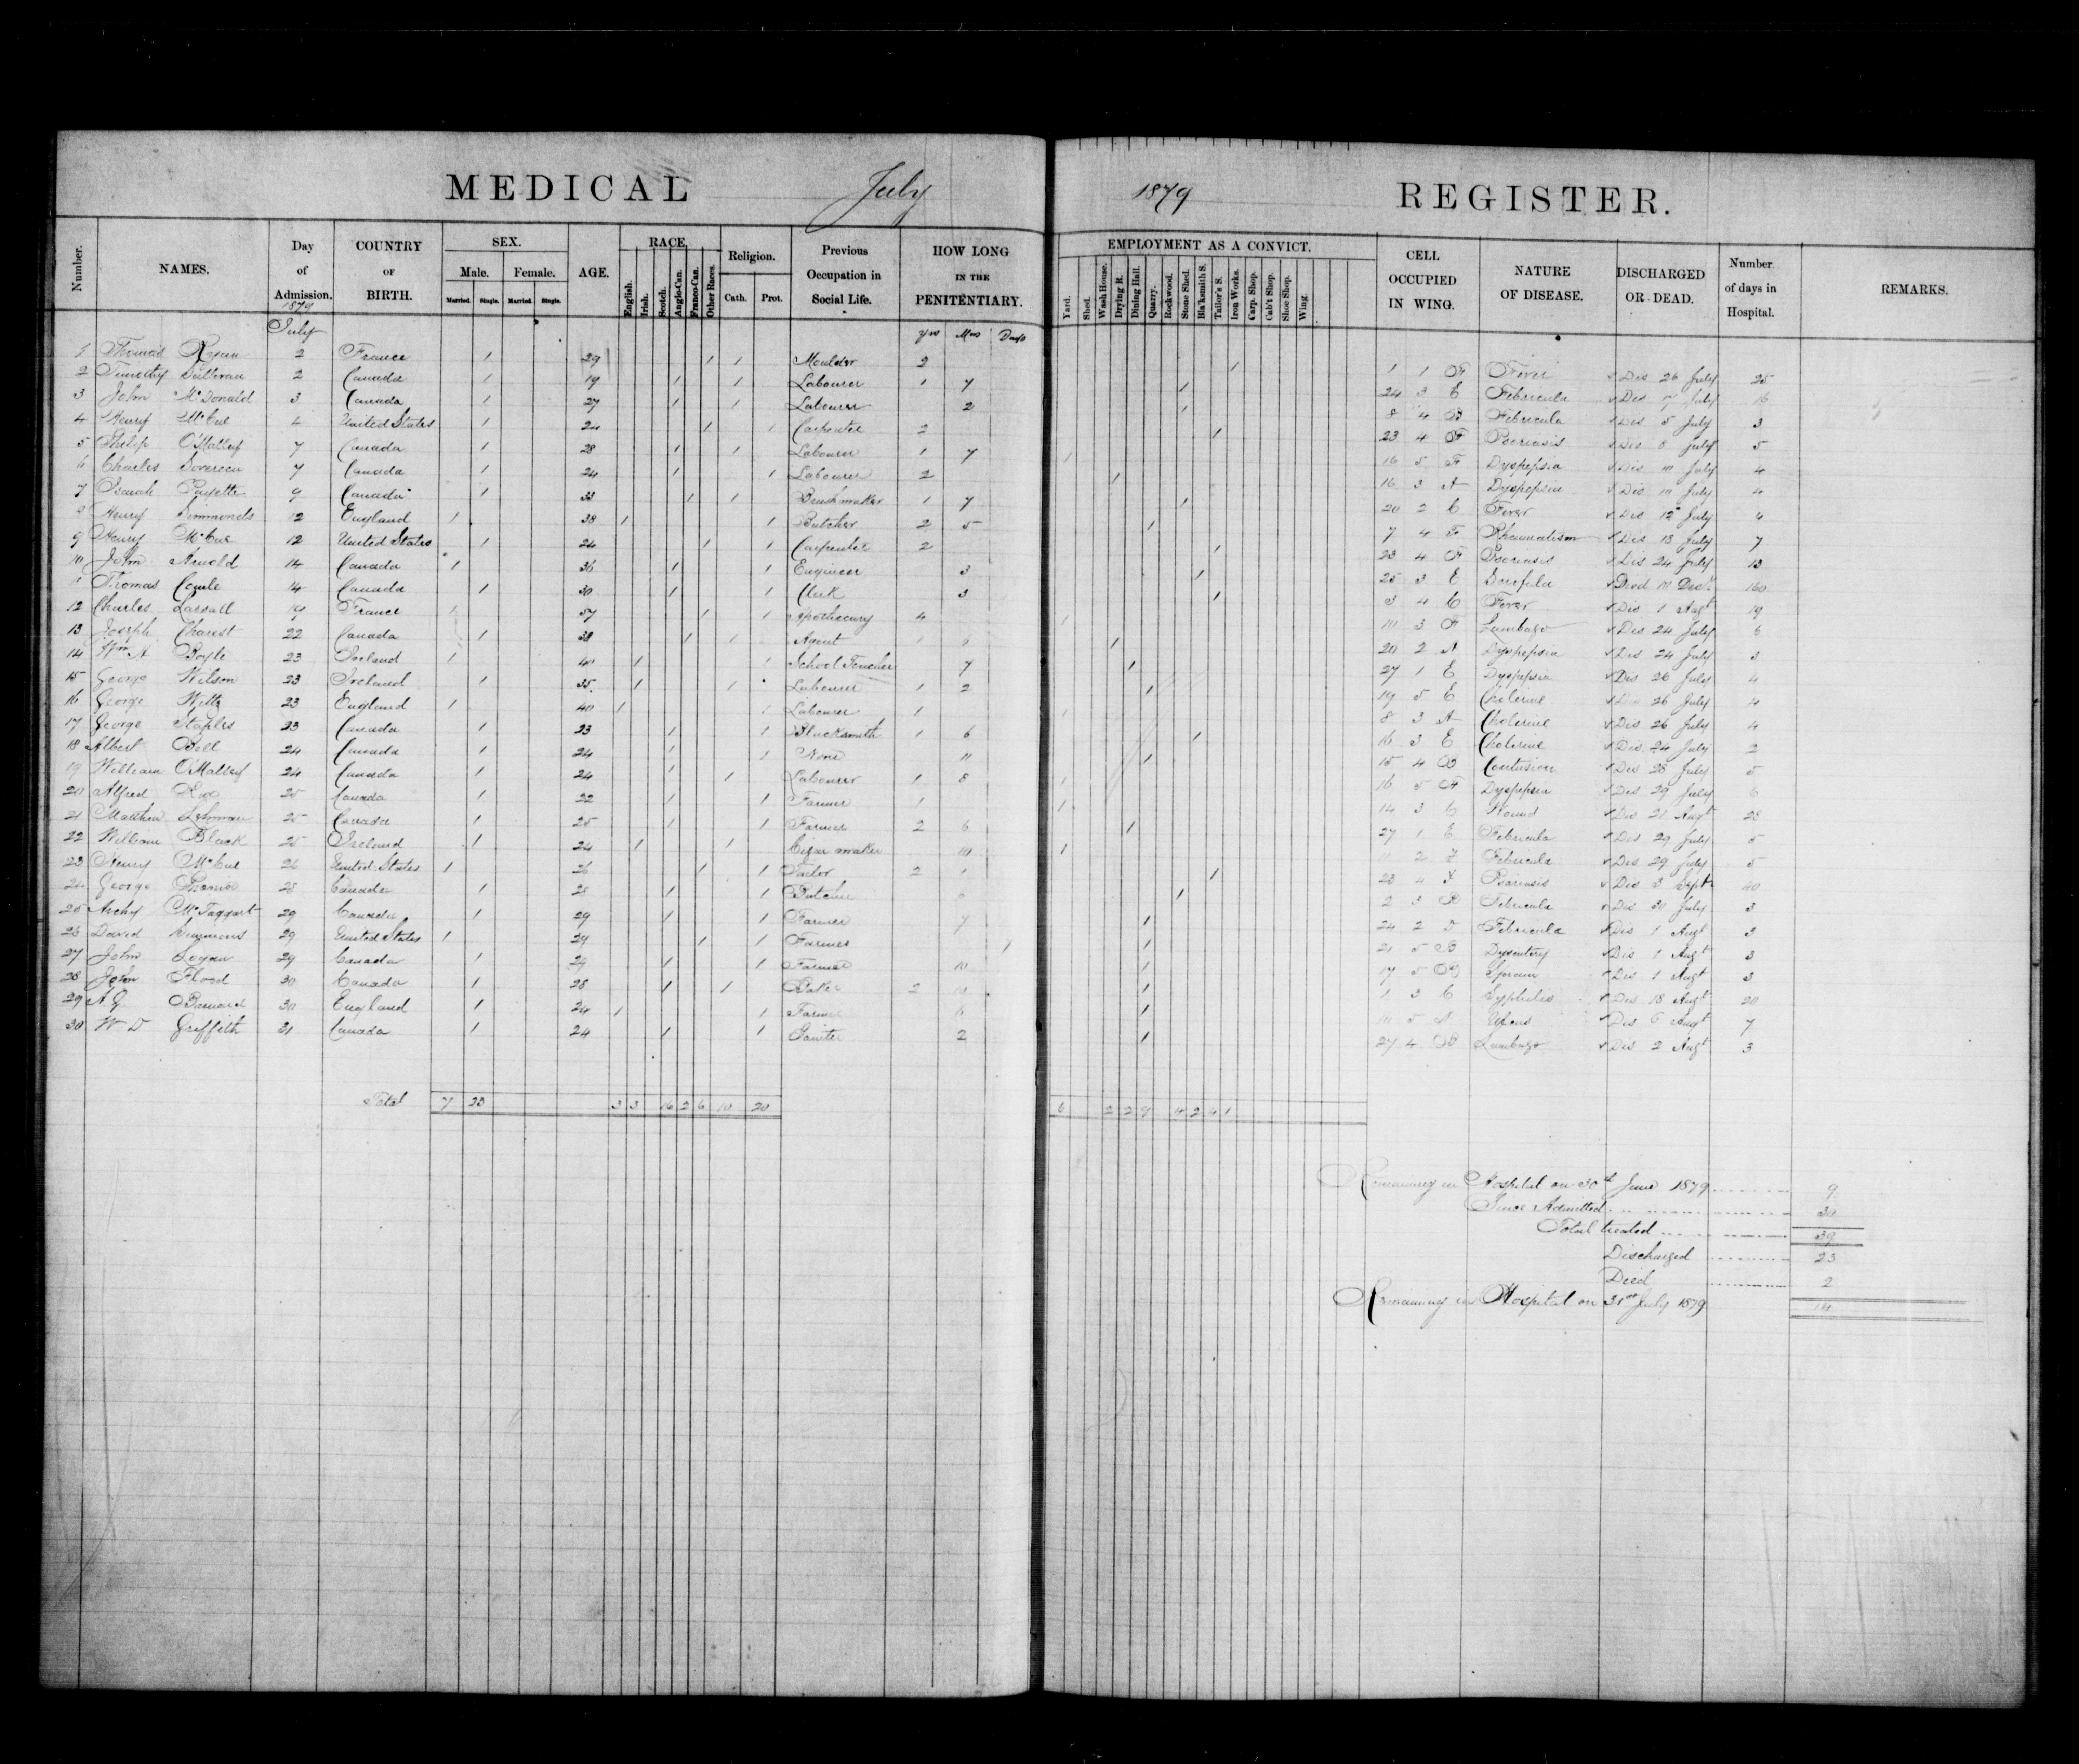 MEDICAL July 1879 REGISTER.
Number. NAMES. Day of Admission. COUNTRY OF BIRTH. SEX. Male. Female. Married. Single. Married. Single. AGE. RACE. English. Irish. Scotch. Anglo-Can. Franco-Can. Other Races. Religion. Cath. Prot. Previous Occupation in Social Life. HOW LONG IN THE PENITENTIARY. EMPLOYMENT AS A CONVICT. Yard. Shed. Wash House. Drying R. Dining Hall. Quarry. Rockwood. Stone Shed. Bla'ksmith S. Tailor's S. Iron Works. Carp. Shop. Cab't Shop. Shoe Shop. Wing. CELL OCCUPIED IN WING. NATURE OF DISEASE. DISCHARGED OR DEAD. Number of days in Hospital. REMARKS.
1879 July yrs Mos Days
1 Thomas 2 France 1 29 1 1 Moulder 2 1 1 1 F Fever Dis 26 July 25
2 Timothy Sullivan 2 Canada 1 19 1 1 Labourer 1 7 1 24 3 E Febricula Dis 7 July 16
3 John McDonald 3 Canada 1 27 1 1 Labourer 2 1 8 4 B Febricula Dis 5 July 3
4 Henry McCue 4 United States 1 24 1 1 Carpenter 2 1 23 4 F Psoriasis Dis 8 July 5
5 Philip O'Malley 7 Canada 1 28 1 1 Labourer 1 7 1 16 5 F Dyspepsia Dis 10 July 4
6 Charles 7 Canada 1 24 1 1 Labourer 2 1 16 3 A Dyspepsia Dis 10 July 4
7 Payette 9 Canada 1 33 1 1 Brushmaker 1 7 1 20 2 C Fever Dis 12 July 4
8 Henry Simmonds 12 England 1 38 1 1 Butcher 2 5 1 7 4 F Rheumatism Dis 18 July 7
9 Henry McCue 12 United States 1 24 1 1 Carpenter 2 1 23 4 F Psoriasis Dis 24 July 13
10 John Arnold 14 Canada 1 36 1 1 Engineer 3 1 25 3 E Scrofula Died 10 Decr 160
11 Thomas 14 Canada 1 30 1 1 Clerk 3 1 3 4 C Fever Dis 1 Augt 19
12 Charles Lassall 19 France 1 57 1 1 Apothecary 4 1 10 3 F Lumbago Dis 24 July 6
13 Joseph Charest 22 Canada 1 38 1 1 Agent 1 6 1 20 2 A Dyspepsia Dis 24 July 3
14 Wm A Boyle 23 Ireland 1 40 1 1 School Teacher 7 1 27 1 E Dyspepsia Dis 26 July 4
15 George Wilson 23 Ireland 1 35 1 1 Labourer 1 2 1 19 5 E Cholerine Dis 26 July 4
16 George 23 England 1 40 1 1 Labourer 1 1 8 3 A Cholerine Dis 26 July 4
17 George Staples 23 Canada 1 23 1 1 Blacksmith 1 6 1 16 3 E Cholerine Dis 24 July 2
18 Albert Bell 24 Canada 1 24 1 1 None 11 1 15 4 B Contusion Dis 28 July 5
19 William O'Malley 24 Canada 1 24 1 1 Labourer 1 8 1 16 5 F Dyspepsia Dis 29 July 6
20 Alfred 25 Canada 1 22 1 1 Farmer 1 1 14 3 C Wound Dis 21 Augt 28
21 Matthew Lehman 25 Canada 1 25 1 1 Farmer 2 6 1 27 1 E Febricula Dis 29 July 5
22 William Black 25 Ireland 1 24 1 1 Cigar maker 10 1 11 2 F Febricula Dis 29 July 5
23 Henry McCue 26 United States 1 26 1 1 Tailor 2 1 1 23 4 F Psoriasis Dis 3 Sept 40
24 George 28 Canada 1 28 1 1 Butcher 1 2 3 B Febricula Dis 30 July 3
25 Archy McTaggart 29 Canada 1 29 1 1 Farmer 7 1 24 2 D Febricula Dis 1 Augt 3
26 David Simmons 29 United States 1 29 1 1 Farmer 1 21 5 B Dysentery Dis 1 Augt 3
27 John Logan 29 Canada 1 29 1 1 Farmer 10 1 17 5 B Sprain Dis 1 Augt 3
28 John Flood 30 Canada 1 28 1 1 Baker 2 10 1 1 3 C Syphilis Dis 18 Augt 20
29 A.G. Barnard 30 England 1 24 1 1 Farmer 6 1 Dis 6 Augt 7
30 W D Griffith 31 Canada 1 24 1 1 Painter 2 1 27 4 B Lumbago Dis 2 Augt 3
Total 7 23 3 3 16 2 6 10 20 6 2 2 9 4 2 4 1
Remaining in Hospital on 30th June 1879 9
Since Admitted 30
Total treated 39
Discharged 23
Died 2
Remaining in Hospital on 31st July 1879 14